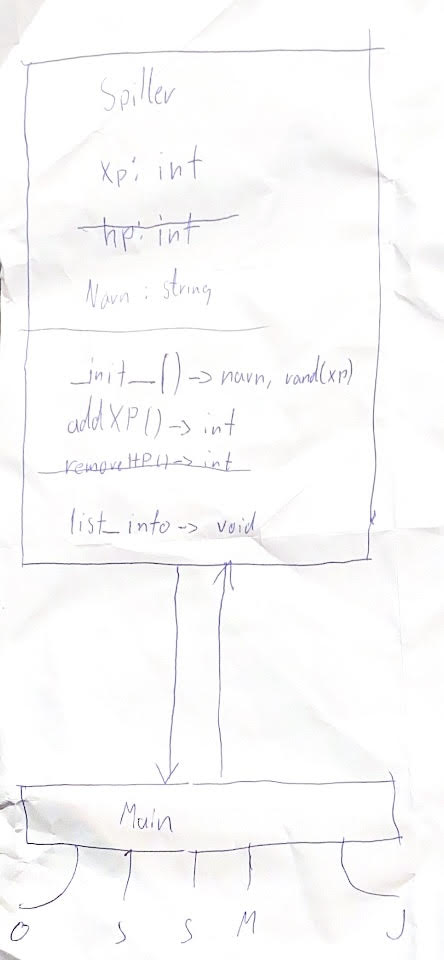 Spiller
xp: int
hp: int
Navn: string
_init_() -> navn, rand(xp)
addXP() -> int
removeHP() -> int
list_info -> void
Main
O S S M J